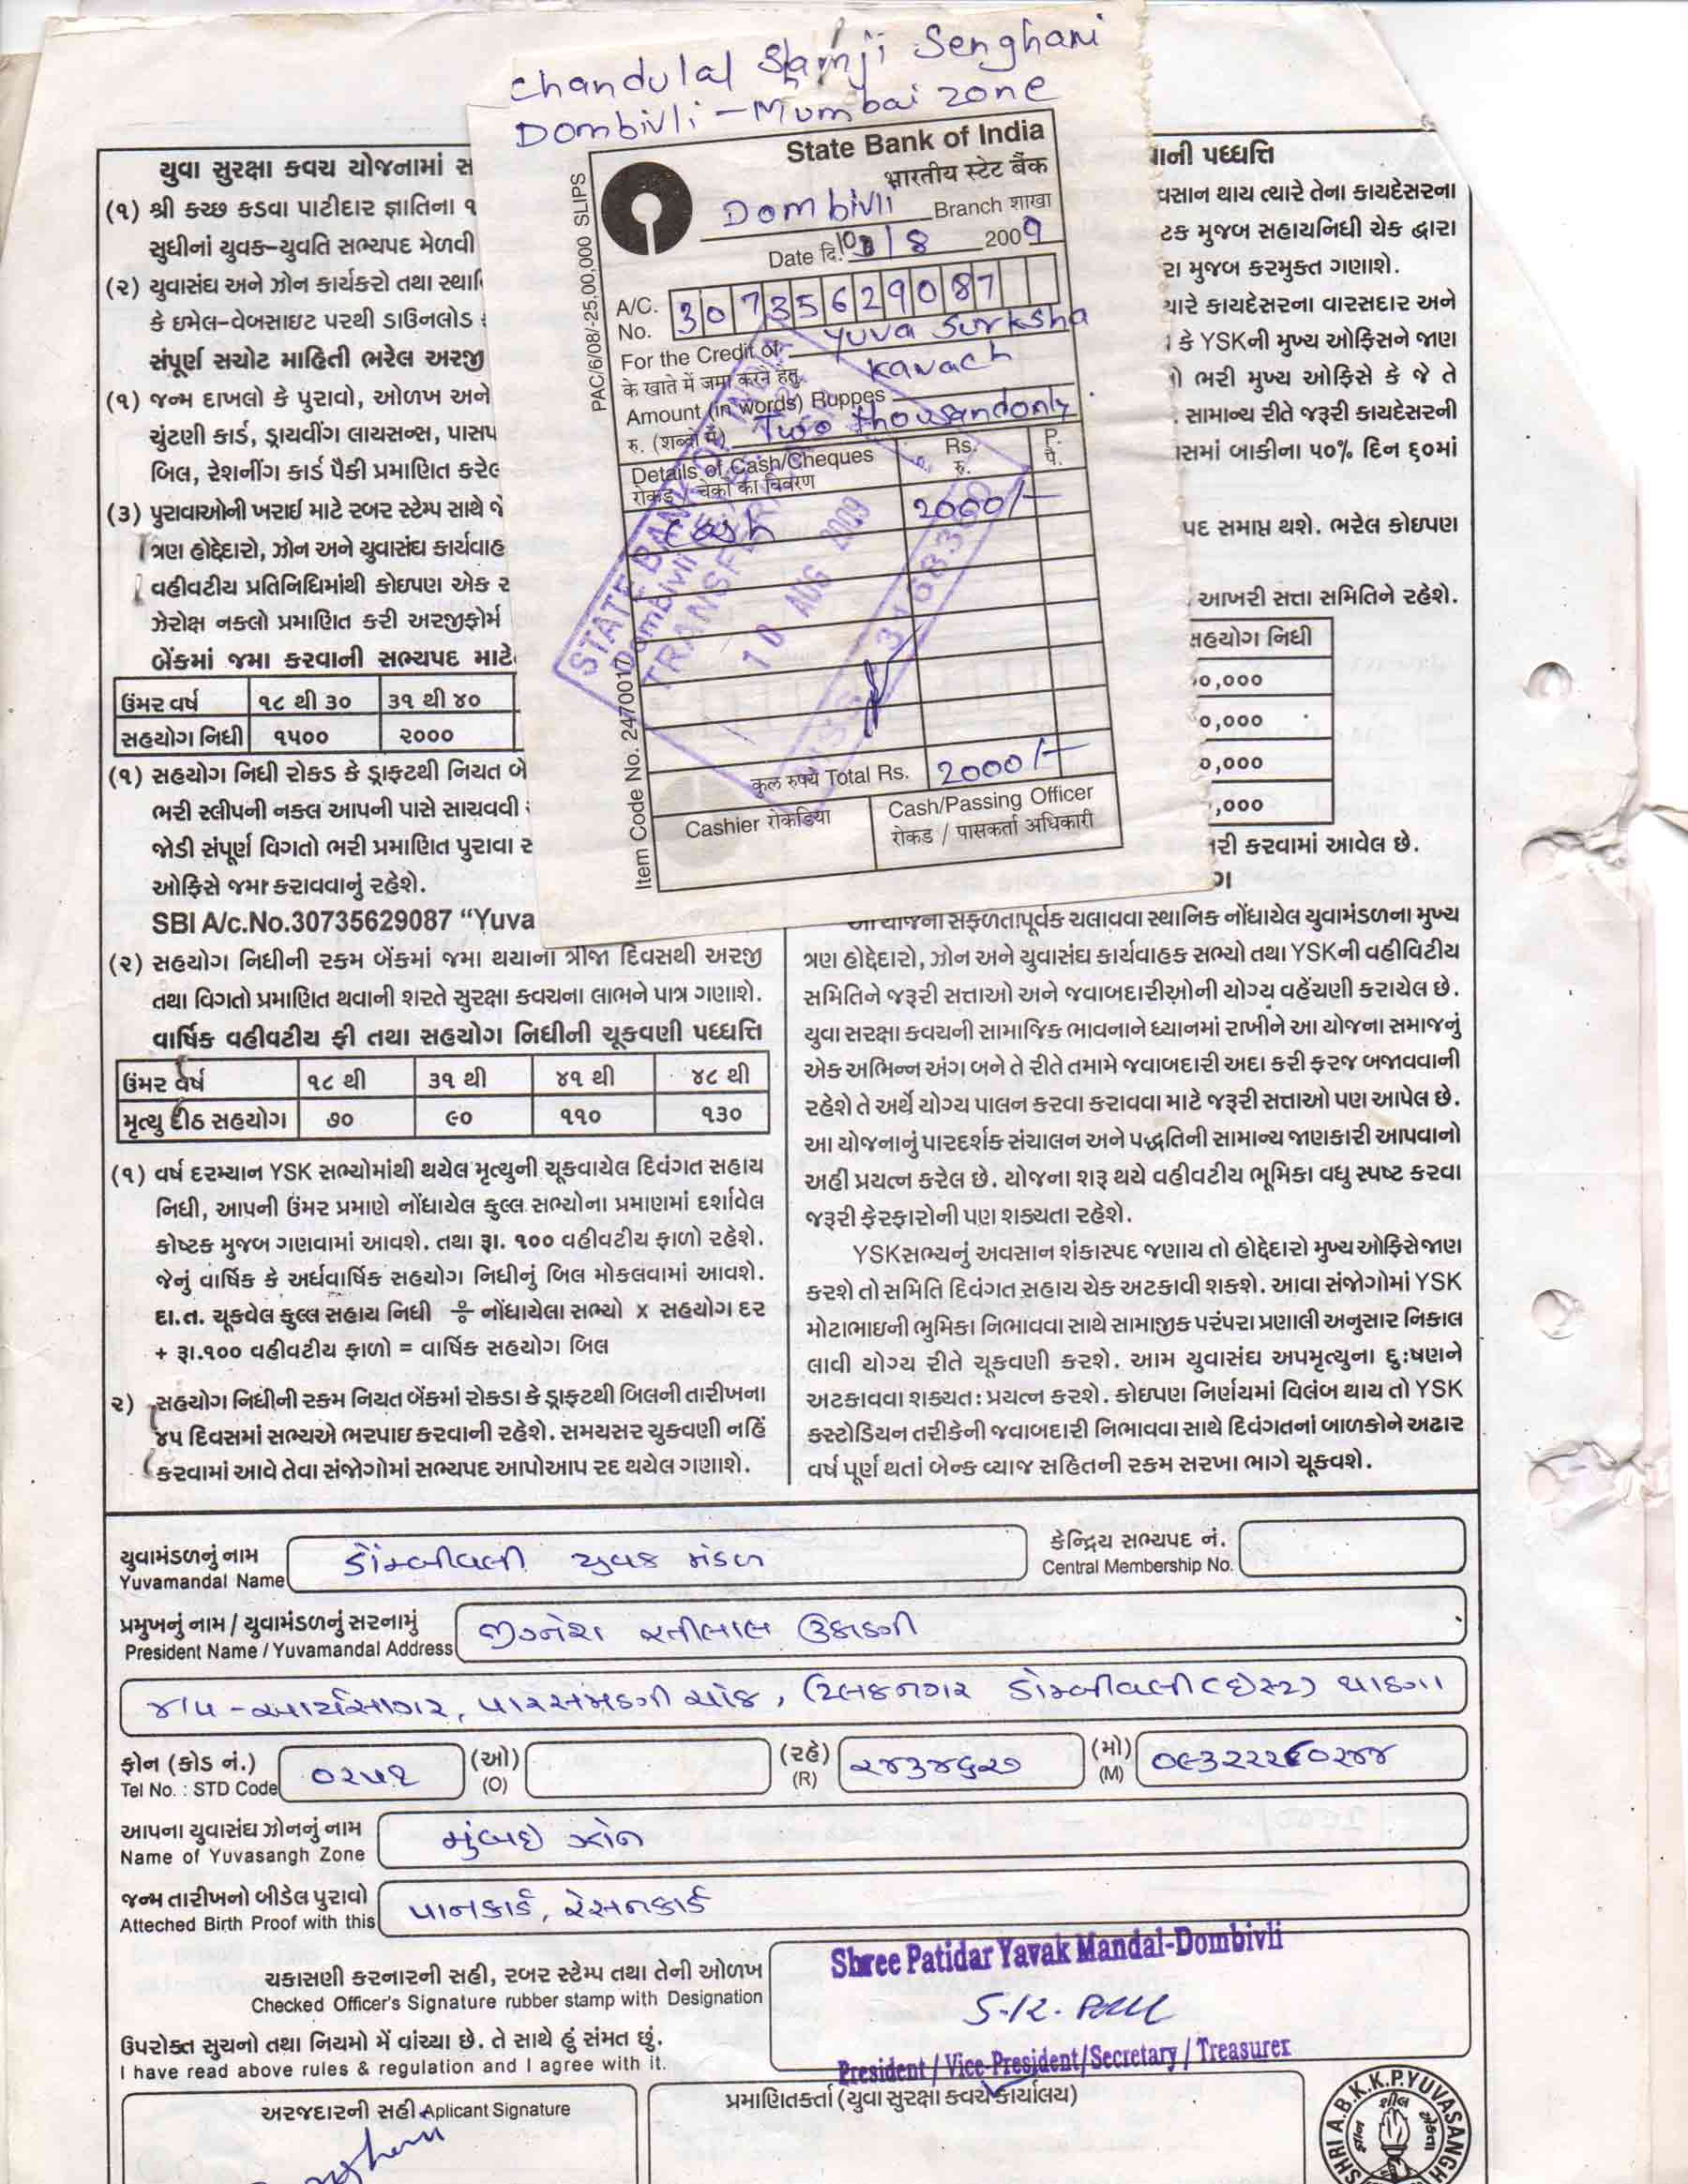 Chandulal Shamji Senghani
Dombivli - Mumbai zone
State Bank of India
भारतीय स्टेट बैंक
Dombivli Branch शाखा
Date दि. 10/8 2009
A/C. No. 30735629087
For the Credit of Yuva Surksha
के खाते में जमा करने हेतु Kavach
Amount (in words) Ruppes
रु. (शब्दों में) Two thousand only
Details of Cash/Cheques
रोकड़ / चेकों का विवरण
Rs. रु.
P. पै.
Cash 2000/-
कुल रुपये Total Rs. 2000/-
Cashier रोकडिया
Cash/Passing Officer
रोकड / पासकर्ता अधिकारी
PAC/6/08/-25,00,000 SLIPS
Item Code No. 2470010
STATE BANK OF INDIA
Dombivli
TRANSFER
10 AUG 2009
યુવા સુરક્ષા કવચ યોજનામાં
(૧) શ્રી કચ્છ કડવા પાટીદાર જ્ઞાતિના ૧
સુધીનાં યુવક-યુવતિ સભ્યપદ મેળવી
(૨) યુવાસંઘ અને ઝોન કાર્યકરો તથા
કે ઇમેલ-વેબસાઇટ પરથી ડાઉનલોડ
સંપૂર્ણ સચોટ માહિતી ભરેલ અરજી
(૧) જન્મ દાખલો કે પુરાવો, ઓળખ અને
ચુંટણી કાર્ડ, ડ્રાયવીંગ લાયસન્સ,
બિલ, રેશનીંગ કાર્ડ પૈકી પ્રમાણિત
(૩) પુરાવાઓની ખરાઇ માટે રબર સ્ટેમ્પ સાથે
ત્રણ હોદ્દેદારો, ઝોન અને યુવાસંઘ
વહીવટીય પ્રતિનિધિમાંથી કોઇપણ એક
ઝેરોક્ષ નકલો પ્રમાણિત કરી અરજીફોર્મ
બેંકમાં જમા કરવાની સભ્યપદ માટે
ઉંમર વર્ષ ૧૮ થી ૩૦ ૩૧ થી ૪૦
સહયોગ નિધી ૧૫૦૦ ૨૦૦૦
(૧) સહયોગ નિધી રોકડ કે ડ્રાફટથી નિયત
ભરી સ્લીપની નકલ આપની પાસે સાચવવી
જોડી સંપૂર્ણ વિગતો ભરી પ્રમાણિત પુરાવા
ઓફિસે જમા કરાવવાનું રહેશે.
SBI A/c.No.30735629087 “Yuva
(૨) સહયોગ નિધીની રકમ બેંકમાં જમા થયાના ત્રીજા દિવસથી અરજી
તથા વિગતો પ્રમાણિત થવાની શરતે સુરક્ષા કવચના લાભને પાત્ર ગણાશે.
વાર્ષિક વહીવટીય ફી તથા સહયોગ નિધીની ચૂકવણી પધ્ધતિ
ઉંમર વર્ષ ૧૮ થી ૩૧ થી ૪૧ થી ૪૮ થી
મૃત્યુ દીઠ સહયોગ ૭૦ ૯૦ ૧૧૦ ૧૩૦
(૧) વર્ષ દરમ્યાન YSK સભ્યોમાંથી થયેલ મૃત્યુની ચૂકવાયેલ દિવંગત સહાય
નિધી, આપની ઉંમર પ્રમાણે નોંધાયેલ કુલ્લ સભ્યોના પ્રમાણમાં દર્શાવેલ
કોષ્ટક મુજબ ગણવામાં આવશે. તથા રૂા. ૧૦૦ વહીવટીય ફાળો રહેશે.
જેનું વાર્ષિક કે અર્ધવાર્ષિક સહયોગ નિધીનું બિલ મોકલવામાં આવશે.
દા.ત. ચૂકવેલ કુલ્લ સહાય નિધી ÷ નોંધાયેલા સભ્યો x સહયોગ દર
+ રૂા.૧૦૦ વહીવટીય ફાળો = વાર્ષિક સહયોગ બિલ
૨) સહયોગ નિધીની રકમ નિયત બેંકમાં રોકડા કે ડ્રાફટથી બિલની તારીખના
૪૫ દિવસમાં સભ્યએ ભરપાઇ કરવાની રહેશે. સમયસર ચુકવણી નહિં
કરવામાં આવે તેવા સંજોગોમાં સભ્યપદ આપોઆપ રદ થયેલ ગણાશે.
પધ્ધતિ
વસાન થાય ત્યારે તેના કાયદેસરના
મુજબ સહાયનિધી ચેક દ્વારા
મુજબ કરમુક્ત ગણાશે.
કાયદેસરના વારસદાર અને
કે YSKની મુખ્ય ઓફિસને જાણ
ભરી મુખ્ય ઓફિસે કે જે તે
સામાન્ય રીતે જરૂરી કાયદેસરની
બાકીના ૫૦% દિન ૬૦માં
સમાપ્ત થશે. ભરેલ કોઇપણ
આખરી સત્તા સમિતિને રહેશે.
સહયોગ નિધી
૦,૦૦૦
૦,૦૦૦
૦,૦૦૦
,૦૦૦
કરવામાં આવેલ છે.
આ યોજના સફળતાપૂર્વક ચલાવવા સ્થાનિક નોંધાયેલ યુવામંડળના મુખ્ય
ત્રણ હોદ્દેદારો, ઝોન અને યુવાસંઘ કાર્યવાહક સભ્યો તથા YSKની વહીવિટીય
સમિતિને જરૂરી સત્તાઓ અને જવાબદારીઓની યોગ્ય વહેંચણી કરાયેલ છે.
યુવા સરક્ષા કવચની સામાજિક ભાવનાને ધ્યાનમાં રાખીને આ યોજના સમાજનું
એક અભિન્ન અંગ બને તે રીતે તમામે જવાબદારી અદા કરી ફરજ બજાવવાની
રહેશે તે અર્થે યોગ્ય પાલન કરવા કરાવવા માટે જરૂરી સત્તાઓ પણ આપેલ છે.
આ યોજનાનું પારદર્શક સંચાલન અને પદ્ધતિની સામાન્ય જાણકારી આપવાનો
અહી પ્રયત્ન કરેલ છે. યોજના શરૂ થયે વહીવટીય ભૂમિકા વધુ સ્પષ્ટ કરવા
જરૂરી ફેરફારોની પણ શક્યતા રહેશે.
YSKસભ્યનું અવસાન શંકાસ્પદ જણાય તો હોદ્દેદારો મુખ્ય ઓફિસે જાણ
કરશે તો સમિતિ દિવંગત સહાય ચેક અટકાવી શકશે. આવા સંજોગોમાં YSK
મોટાભાઇની ભુમિકા નિભાવવા સાથે સામાજીક પરંપરા પ્રણાલી અનુસાર નિકાલ
લાવી યોગ્ય રીતે ચૂકવણી કરશે. આમ યુવાસંઘ અપમૃત્યુના દુઃષણને
અટકાવવા શક્યત: પ્રયત્ન કરશે. કોઇપણ નિર્ણયમાં વિલંબ થાય તો YSK
કસ્ટોડિયન તરીકેની જવાબદારી નિભાવવા સાથે દિવંગતનાં બાળકોને અઢાર
વર્ષ પૂર્ણ થતાં બેન્ક વ્યાજ સહિતની રકમ સરખા ભાગે ચૂકવશે.
યુવામંડળનું નામ ડોંમ્બીવલી યુવક મંડળ
Yuvamandal Name
કેન્દ્રિય સભ્યપદ નં.
Central Membership No.
પ્રમુખનું નામ / યુવામંડળનું સરનામું જીગ્નેશ રતીલાલ
President Name / Yuvamandal Address
૪/૫ - આર્યસાગર, પારસમણી ચોક, ટિલકનગર ડોમ્બીવલી (ઇસ્ટ) થાણા
ફોન (કોડ નં.) ૦૨૫૧ (ઓ) (રહે) ૨૪૩૪૬૨૭ (મો) ૦૯૩૨૨૨૬૦૨૪૪
Tel No. : STD Code (O) (R) (M)
આપના યુવાસંઘ ઝોનનું નામ મુંબઇ ઝોન
Name of Yuvasangh Zone
જન્મ તારીખનો બીડેલ પુરાવો પાનકાર્ડ, રેસનકાર્ડ
Atteched Birth Proof with this
ચકાસણી કરનારની સહી, રબર સ્ટેમ્પ તથા તેની ઓળખ
Checked Officer's Signature rubber stamp with Designation
Shree Patidar Yavak Mandal-Dombivli
President / Vice-President/Secretary / Treasurer
ઉપરોક્ત સુચનો તથા નિયમો મેં વાંચ્યા છે. તે સાથે હું સંમત છું.
I have read above rules & regulation and I agree with it.
અરજદારની સહી Aplicant Signature
પ્રમાણિતકર્તા (યુવા સુરક્ષા કવચ કાર્યાલય)
SHRI A.B.K.K.P.YUVASANGH